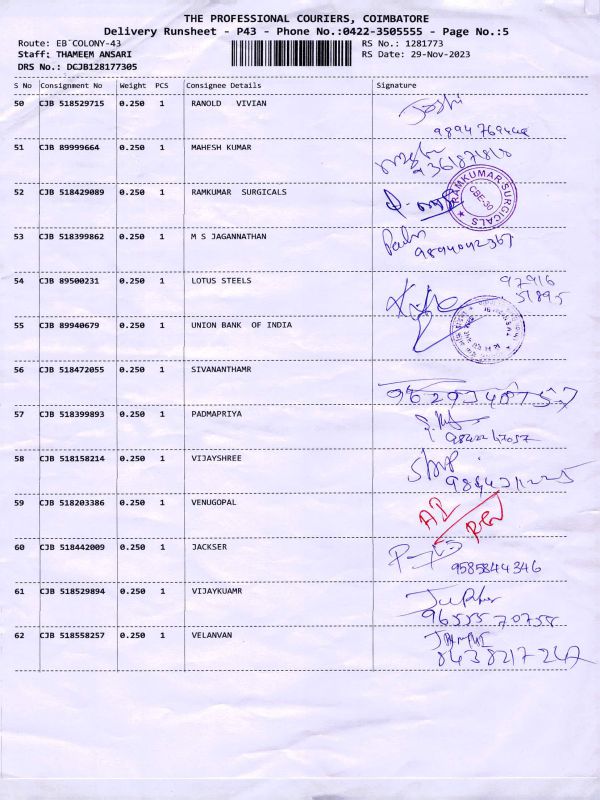 THE PROFESSIONAL COURIERS, COIMBATORE
Delivery Runsheet - P43 - Phone No.:0422-3505555 - Page No.:5
Route: EB COLONY-43 RS No.: 1281773
Staff: THAMEEM ANSARI RS Date: 29-Nov-2023
DRS No.: DCJB128177305
S No Consignment No Weight PCS Consignee Details Signature
50 CJB 518529715 0.250 1 RANOLD VIVIAN
51 CJB 89999664 0.250 1 MAHESH KUMAR
52 CJB 518429089 0.250 1 RAMKUMAR SURGICALS
RAMKUMAR SURGICALS
CBE-30
53 CJB 518399862 0.250 1 M S JAGANNATHAN
9894042367
54 CJB 89500231 0.250 1 LOTUS STEELS
97916
51895
55 CJB 89940679 0.250 1 UNION BANK OF INDIA
56 CJB 518472055 0.250 1 SIVANANTHAMR
57 CJB 518399893 0.250 1 PADMAPRIYA
58 CJB 518158214 0.250 1 VIJAYSHREE
59 CJB 518203386 0.250 1 VENUGOPAL
60 CJB 518442009 0.250 1 JACKSER
9585844346
61 CJB 518529894 0.250 1 VIJAYKUAMR
9655570758
62 CJB 518558257 0.250 1 VELANVAN